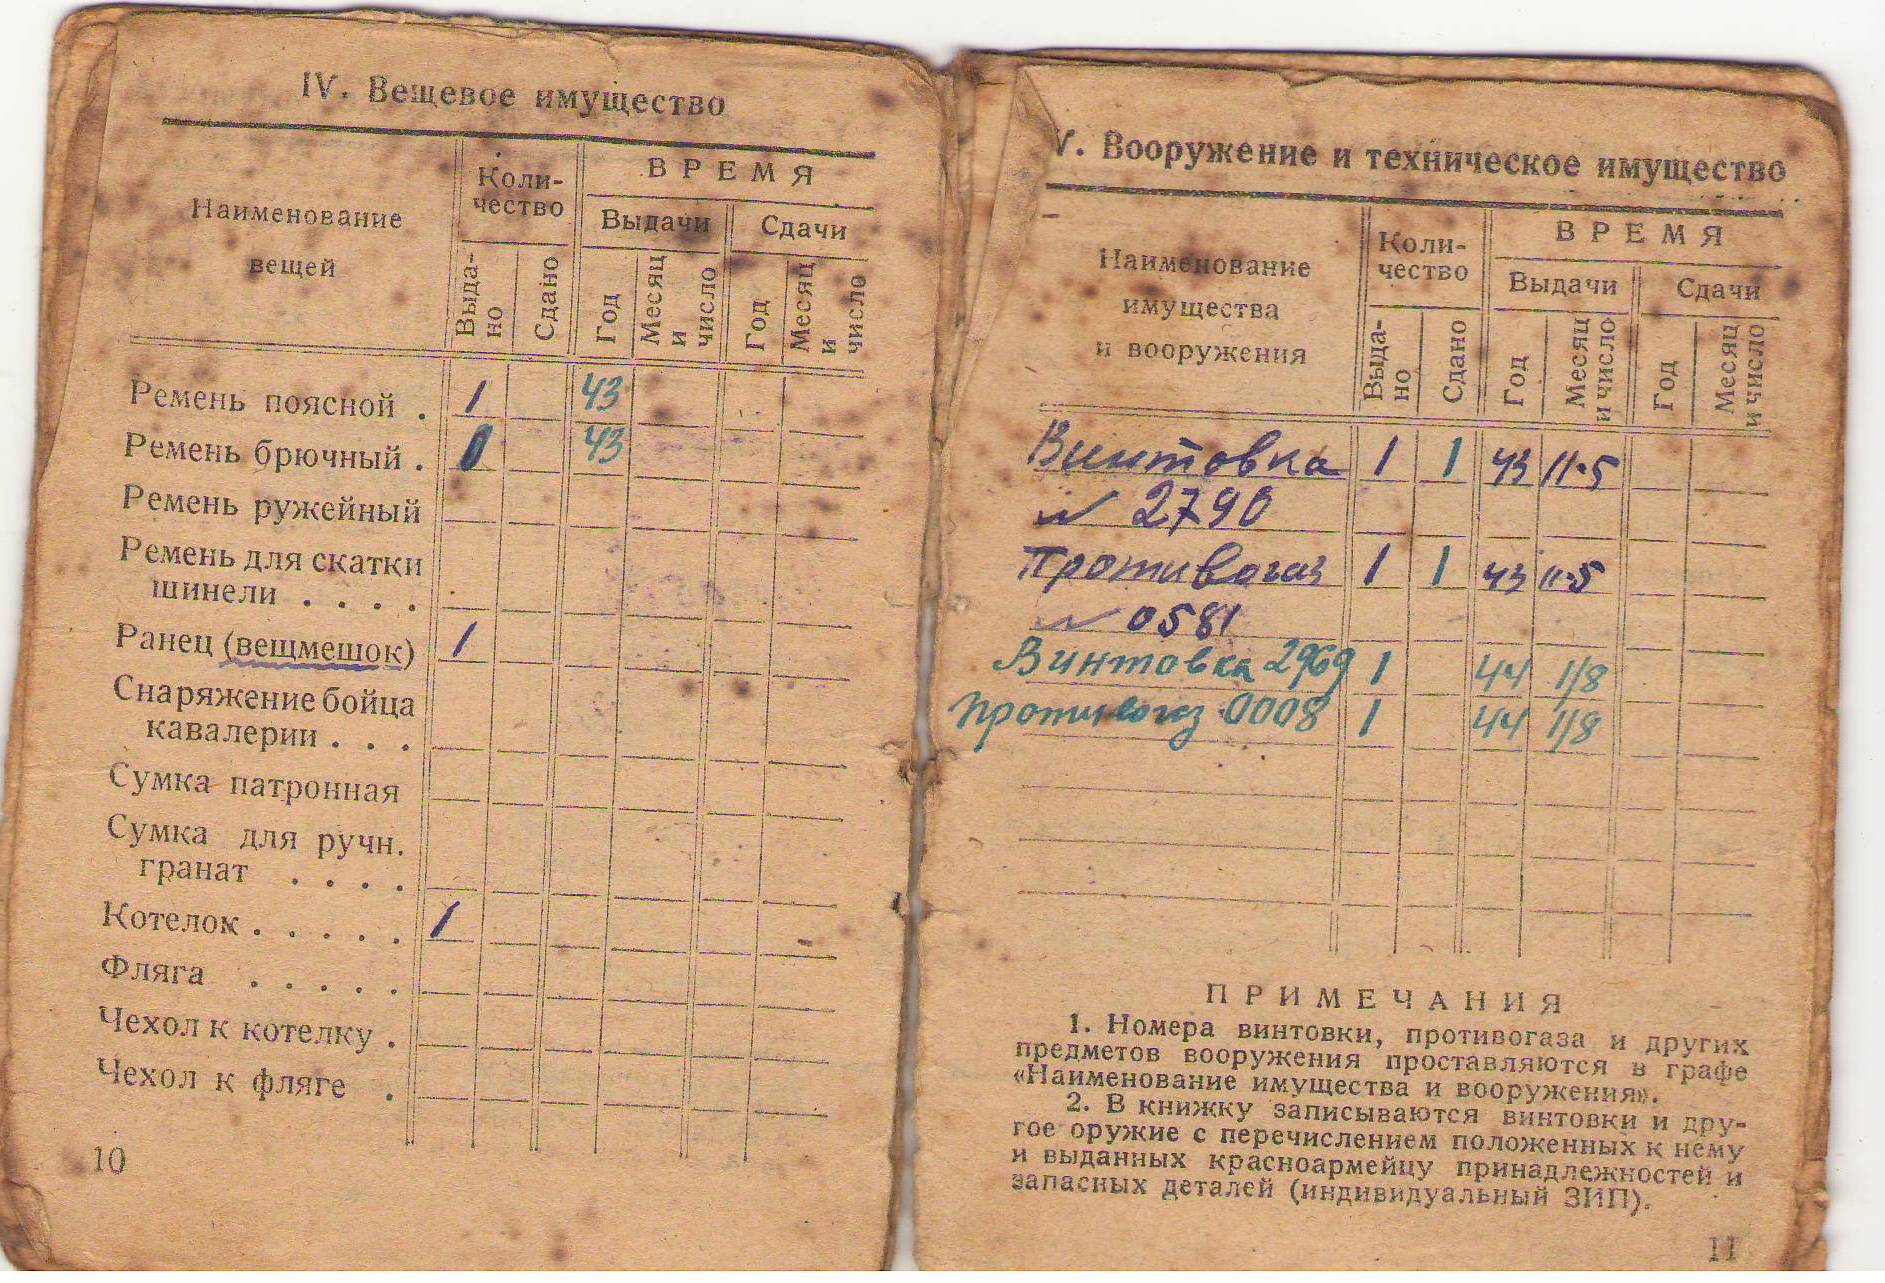 IV. Вещевое имущество
Наименование
вещей
Коли-
чество
ВРЕМЯ
Выдачи
Сдачи
Выда-
но
Сдано
Год
Месяц
и
число
Год
Месяц
и
число
Ремень поясной . 1 43
Ремень брючный . 43
Ремень ружейный
Ремень для скатки
шинели . . . .
Ранец (вещмешок) 1
Снаряжение бойца
кавалерии . . .
Сумка патронная
Сумка для ручн.
гранат . . . .
Котелок . . . . . 1
Фляга . . . . .
Чехол к котелку .
Чехол к фляге .
10
V. Вооружение и техническое имущество
Наименование
имущества
и вооружения
Коли-
чество
ВРЕМЯ
Выдачи
Сдачи
Выда-
но
Сдано
Год
Месяц
и число
Год
Месяц
и число
Винтовка 1 1 43 11·5
№ 2790
Противогаз 1 1 43 11·5
№ 0581
Винтовка 2969 1 44 1/8
Противогаз 0008 1 44 1/8
ПРИМЕЧАНИЯ
1. Номера винтовки, противогаза и других
предметов вооружения проставляются в графе
«Наименование имущества и вооружения».
2. В книжку записываются винтовки и дру-
гое оружие с перечислением положенных к нему
и выданных красноармейцу принадлежностей и
запасных деталей (индивидуальный ЗИП).
11